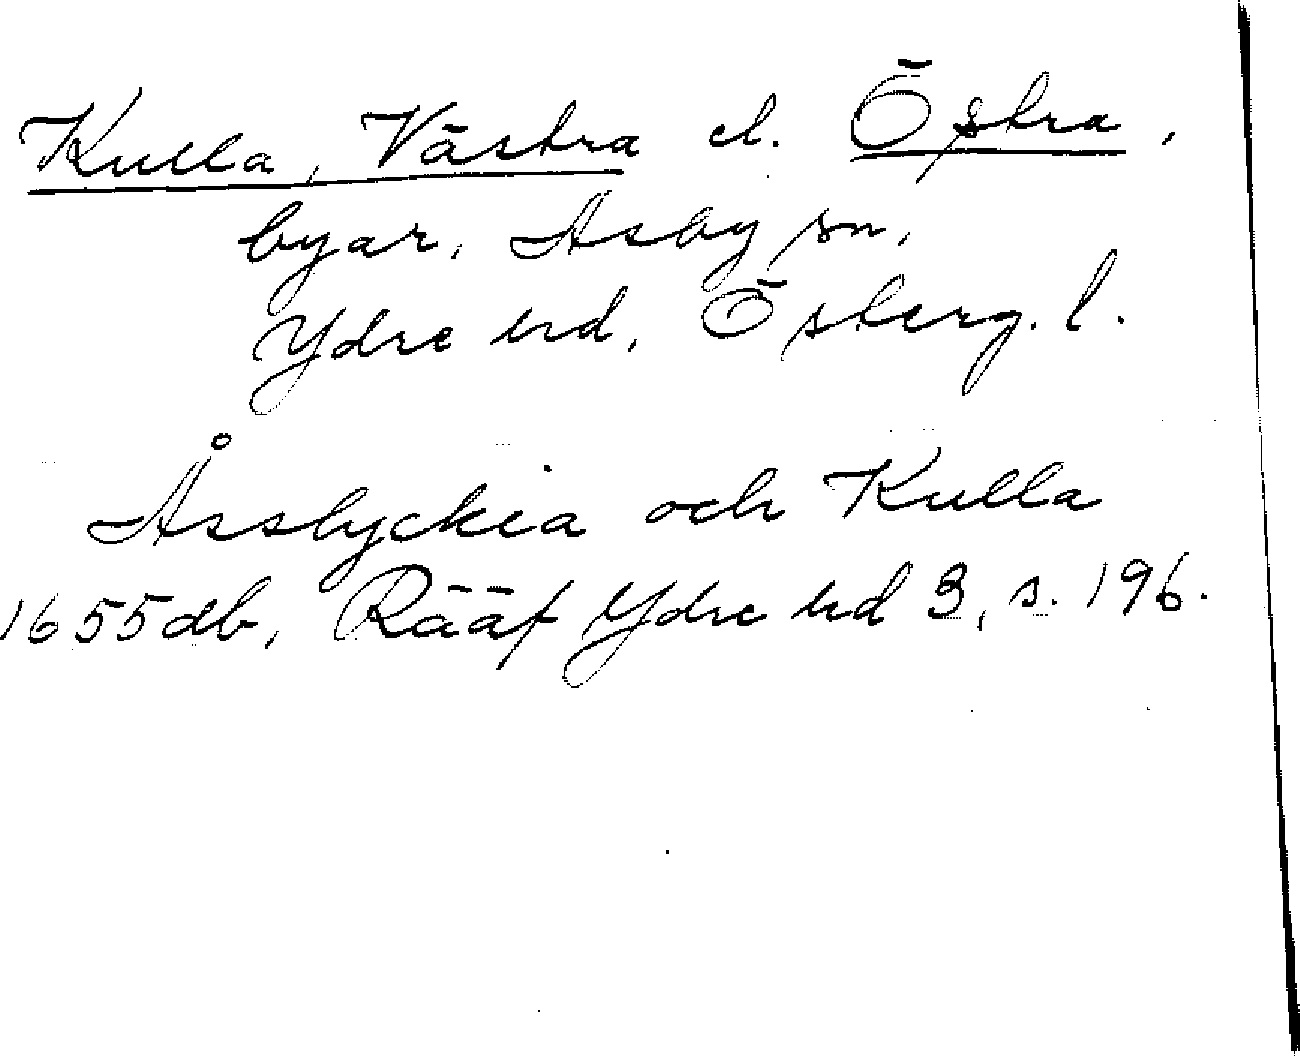 Kulla, Västra el. Östra,
byar, Asby sn,
Ydre hd, Österg. l.
Åsslyckia och Kulla
1655 db, Rääf Ydre hd 3, s. 196.